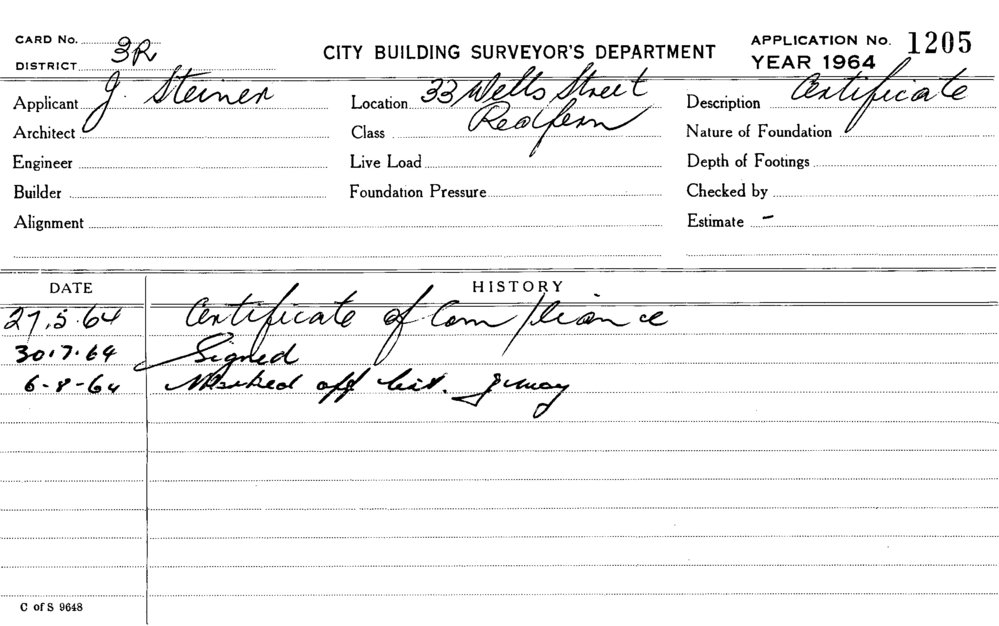 CARD No.
DISTRICT 3R
CITY BUILDING SURVEYOR'S DEPARTMENT
APPLICATION No. 1205
YEAR 1964
Applicant J. Steiner
Location 33 Wells Street
Redfern
Description Certificate
Architect
Class
Nature of Foundation
Engineer
Live Load
Depth of Footings
Builder
Foundation Pressure
Checked by
Alignment
Estimate –
DATE HISTORY
27.5.64 Certificate of Compliance
30.7.64 Signed
6-8-64 Marked off list.
C of S 9648